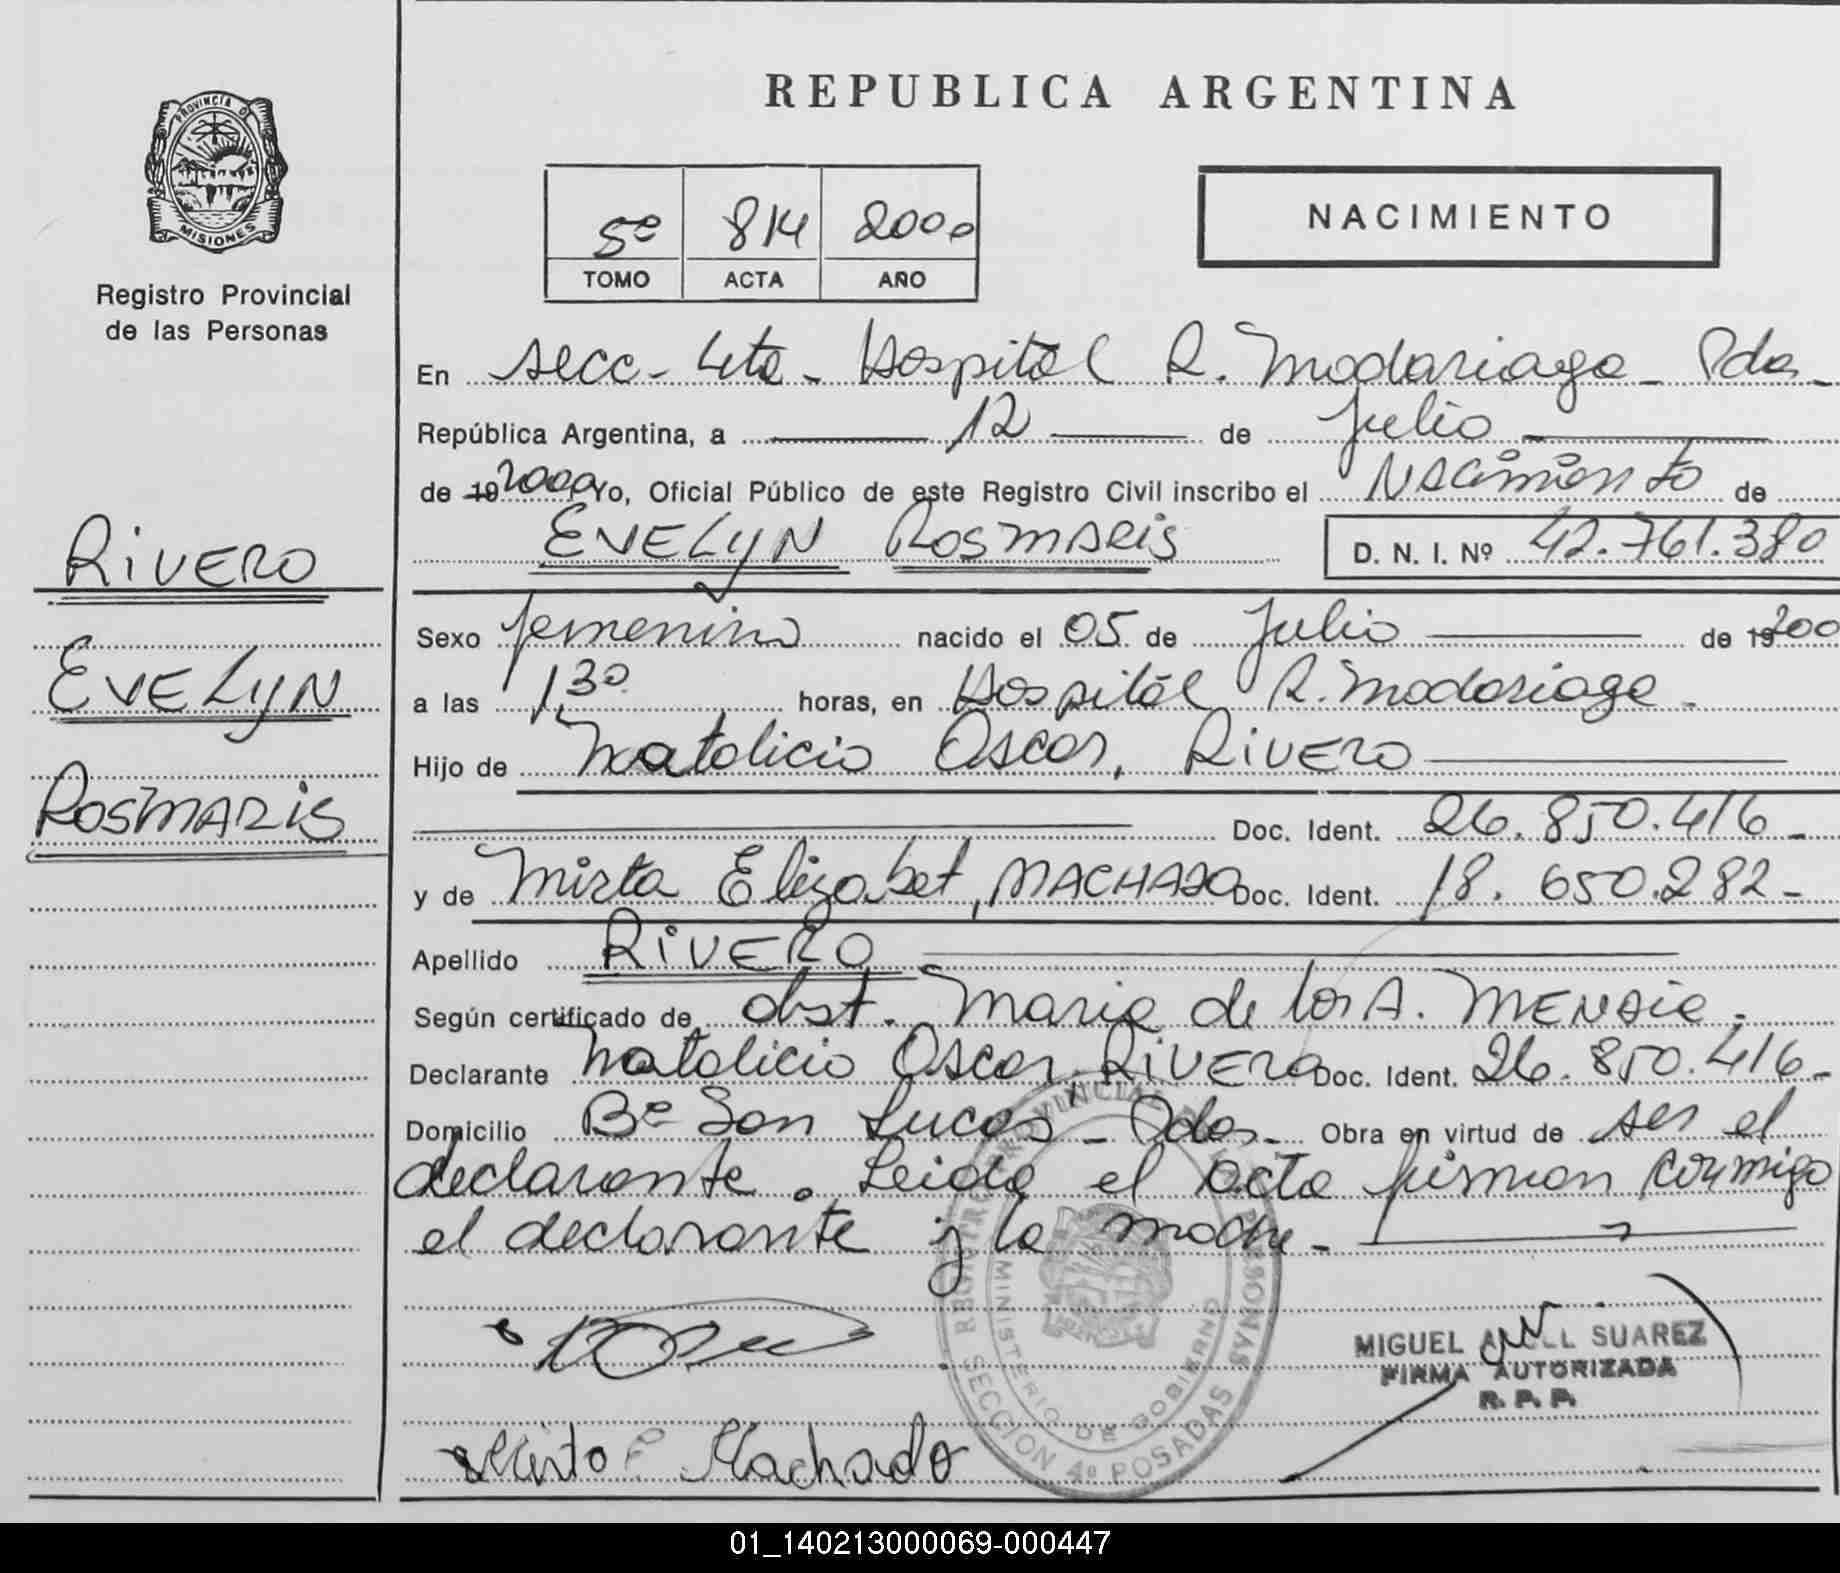 PROVINCIA DE
MISIONES
Registro Provincial
de las Personas
RIVERO
EVELYN
ROSMARIS
REPUBLICA ARGENTINA
5º 814 2000
TOMO ACTA AÑO
NACIMIENTO
En secc- 4ta - Hospital R. Madariaga - Pdas -
República Argentina, a 12 de Julio
de 19 2000 Yo, Oficial Público de este Registro Civil inscribo el Nacimiento de
EVELYN ROSMARIS D. N. I. Nº 42.761.380
Sexo femenino nacido el 05 de Julio de 19 200
a las 1,30 horas, en Hospital R. Madariaga -
Hijo de Natalicio Oscar, RIVERO
Doc. Ident. 26.850.416 -
y de Mirta Elizabet, MACHADO Doc. Ident. 18.650.282 -
Apellido RIVERO
Según certificado de obst. Maria de los A. MENDIE -
Declarante Natalicio Oscar, RIVERO Doc. Ident. 26.850.416 -
Domicilio Bº San Lucas - Pdas - Obra en virtud de ser el
declarante. Leida el acta firman conmigo
el declarante y la madre -
MIGUEL SUAREZ
FIRMA AUTORIZADA
R. P. P.
Mirta E Machado
REGISTRO PROVINCIAL DE LAS PERSONAS
MINISTERIO DE GOBIERNO
SECCION 4º POSADAS
01_140213000069-000447